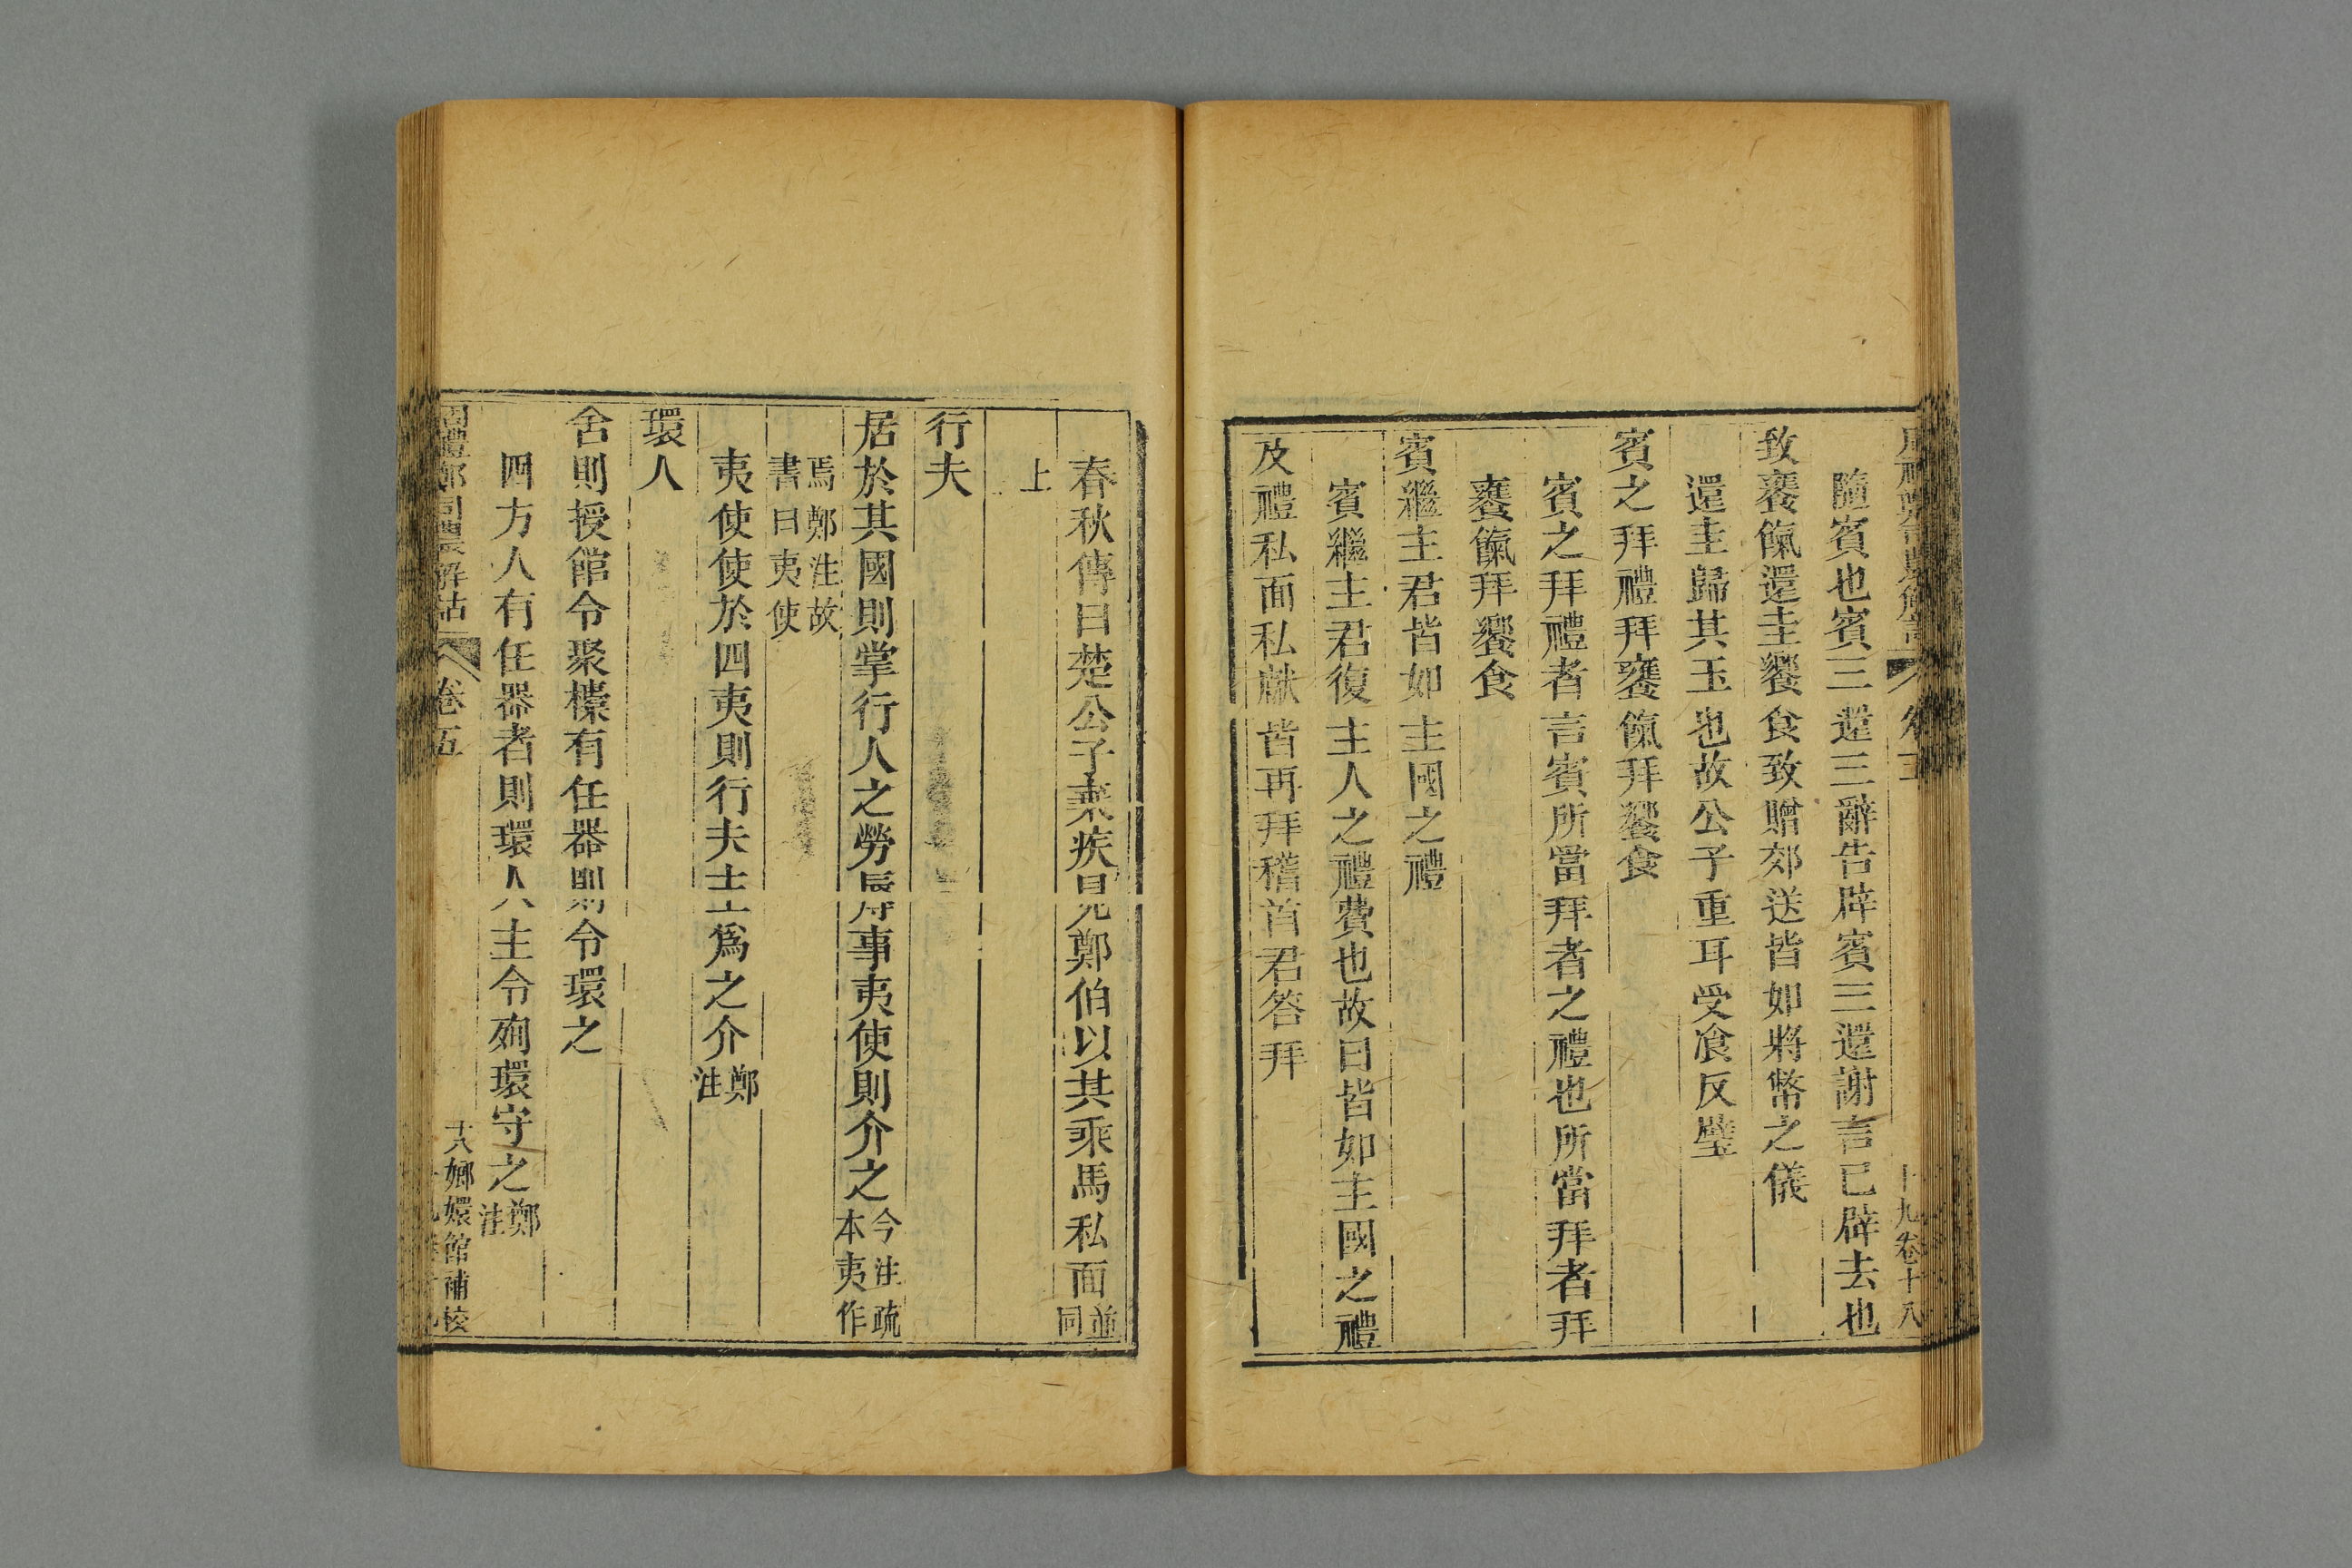 隨賓也賓三還三辭告辟賓三還謝言已辟去也
致饔餼還圭饗食致贈郊送皆如將幣之儀
還圭歸其玉也故公子重耳受飧反璧
賓之拜禮拜饔餼拜饗食
賓之拜禮者言賓所當拜者之禮也所當拜者拜
饔餼拜饗食
賓繼主君皆如主國之禮
賓繼主君復主人之禮費也故曰皆如主國之禮
及禮私面私獻皆再拜稽首君答拜
春秋傳曰楚公子棄疾見鄭伯以其乘馬私面並同
上
行夫
居於其國則掌行人之勞辱事夷使則介之今注疏本夷作
焉鄭注故書曰夷使
夷使使於四夷則行夫主爲之介鄭注
環人
舍則授館令聚檬有任器則令環之
四方人有任器者則環人主令殉環守之鄭注
周禮鄭司農解詁 卷五 十八 嫏嬛館補校